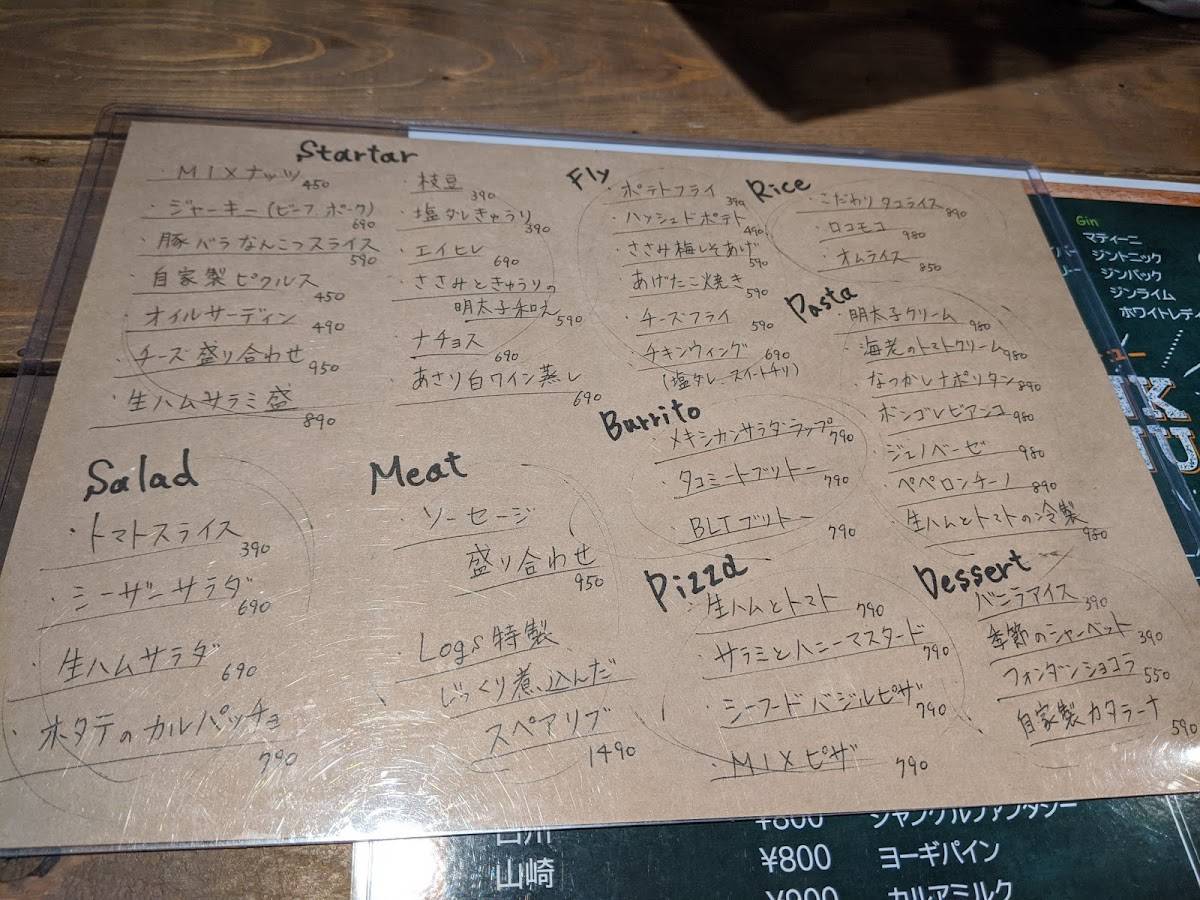 Startar
・MIXナッツ 450
・ジャーキー(ビーフ ポーク) 690
・豚バラなんこつスライス 590
・自家製ピクルス 450
・オイルサーディン 490
・チーズ盛り合わせ 950
・生ハムサラミ盛 890
・枝豆 390
・塩ダレきゅうり 390
・エイヒレ 690
・ささみときゅうりの
明太子和え 590
・ナチョス 690
・あさり白ワイン蒸し 690
Fly
・ポテトフライ 390
・ハッシュドポテト 490
・ささみ梅しそあげ 590
・あげたこ焼き 590
・チーズフライ 590
・チキンウィング 690
(塩ダレ、スイートチリ)
Rice
・こだわりタコライス 890
・ロコモコ 980
・オムライス 850
Pasta
・明太子クリーム 980
・海老のトマトクリーム 980
・なつかしナポリタン 890
・ボンゴレビアンコ 980
・ジェノベーゼ 980
・ペペロンチーノ 890
・生ハムとトマトの冷製 980
Burrito
・メキシカンサラダラップ 790
・タコミートブリトー 790
・BLTブリトー 790
Salad
・トマトスライス 390
・シーザーサラダ 690
・生ハムサラダ 690
・ホタテのカルパッチョ 790
Meat
・ソーセージ
盛り合わせ 950
・Logs特製
じっくり煮込んだ
スペアリブ 1490
Pizza
・生ハムとトマト 790
・サラミとハニーマスタード 790
・シーフードバジルピザ 790
・MIXピザ 790
Dessert
・バニラアイス 390
・季節のシャーベット 390
・フォンダンショコラ 550
・自家製カタラーナ 590
Gin
マティーニ
ジントニック
ジンバック
ジンライム
ホワイトレディ
¥800 ジャングルファンタジー
山崎 ¥800 ヨーギパイン
¥900 カルアミルク